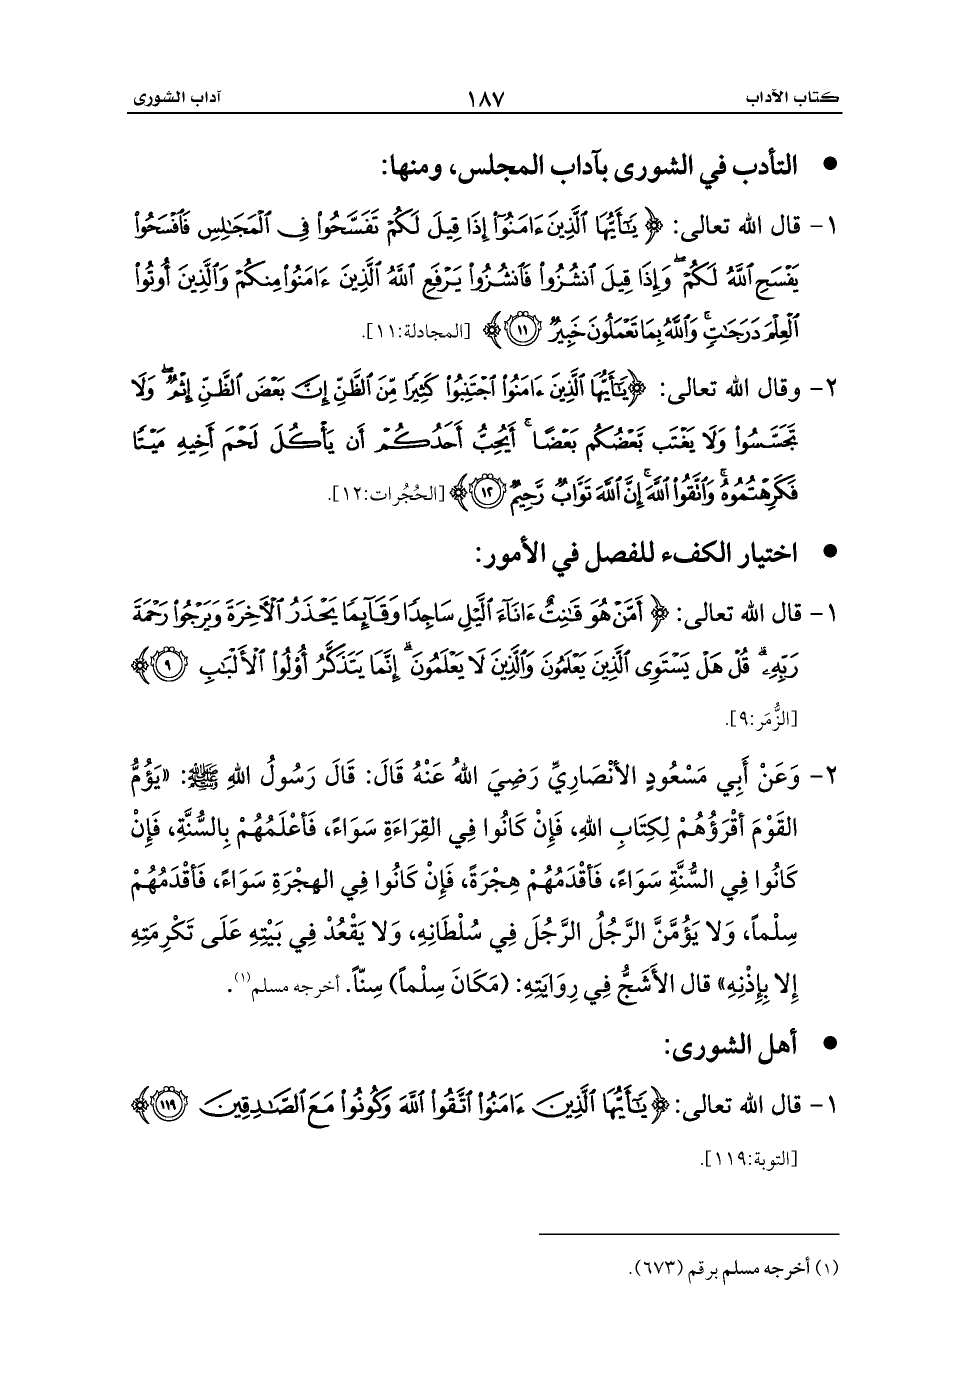 كتاب الآداب ١٨٧ آداب الشورى
● التأدب في الشورى بآداب المجلس، ومنها:
١- قال الله تعالى: ﴿ يَٰٓأَيُّهَا ٱلَّذِينَ ءَامَنُوٓا۟ إِذَا قِيلَ لَكُمْ تَفَسَّحُوا۟ فِى ٱلْمَجَٰلِسِ فَٱفْسَحُوا۟
يَفْسَحِ ٱللَّهُ لَكُمْ ۖ وَإِذَا قِيلَ ٱنشُزُوا۟ فَٱنشُزُوا۟ يَرْفَعِ ٱللَّهُ ٱلَّذِينَ ءَامَنُوا۟ مِنكُمْ وَٱلَّذِينَ أُوتُوا۟
ٱلْعِلْمَ دَرَجَٰتٍ ۚ وَٱللَّهُ بِمَا تَعْمَلُونَ خَبِيرٌ ۝١١ ﴾ [المجادلة:١١].
٢- وقال الله تعالى: ﴿يَٰٓأَيُّهَا ٱلَّذِينَ ءَامَنُوا۟ ٱجْتَنِبُوا۟ كَثِيرًا مِّنَ ٱلظَّنِّ إِنَّ بَعْضَ ٱلظَّنِّ إِثْمٌ ۖ وَلَا
تَجَسَّسُوا۟ وَلَا يَغْتَب بَّعْضُكُم بَعْضًا ۚ أَيُحِبُّ أَحَدُكُمْ أَن يَأْكُلَ لَحْمَ أَخِيهِ مَيْتًا
فَكَرِهْتُمُوهُ ۚ وَٱتَّقُوا۟ ٱللَّهَ ۚ إِنَّ ٱللَّهَ تَوَّابٌ رَّحِيمٌ ۝١٢ ﴾ [الحُجُرات:١٢].
● اختيار الكفء للفصل في الأمور:
١- قال الله تعالى: ﴿ أَمَّنْ هُوَ قَٰنِتٌ ءَانَآءَ ٱلَّيْلِ سَاجِدًا وَقَآئِمًا يَحْذَرُ ٱلْءَاخِرَةَ وَيَرْجُوا۟ رَحْمَةَ
رَبِّهِۦ ۗ قُلْ هَلْ يَسْتَوِى ٱلَّذِينَ يَعْلَمُونَ وَٱلَّذِينَ لَا يَعْلَمُونَ ۗ إِنَّمَا يَتَذَكَّرُ أُو۟لُوا۟ ٱلْأَلْبَٰبِ ۝٩ ﴾
[الزُّمَر:٩].
٢- وَعَنْ أَبِي مَسْعُودٍ الأنْصَارِيِّ رَضِيَ اللهُ عَنْهُ قَالَ: قَالَ رَسُولُ اللهِ ﷺ: «يَؤُمُّ
القَوْمَ أقْرَؤُهُمْ لِكِتَابِ اللهِ، فَإِنْ كَانُوا فِي القِرَاءَةِ سَوَاءً، فَأعْلَمُهُمْ بِالسُّنَّةِ، فَإِنْ
كَانُوا فِي السُّنَّةِ سَوَاءً، فَأقْدَمُهُمْ هِجْرَةً، فَإِنْ كَانُوا فِي الهِجْرَةِ سَوَاءً، فَأقْدَمُهُمْ
سِلْماً، وَلا يَؤُمَّنَّ الرَّجُلُ الرَّجُلَ فِي سُلْطَانِهِ، وَلا يَقْعُدْ فِي بَيْتِهِ عَلَى تَكْرِمَتِهِ
إِلا بِإِذْنِهِ» قال الأشَجُّ فِي رِوَايَتِهِ: (مَكَانَ سِلْماً) سِنّاً. أخرجه مسلم(١).
● أهل الشورى:
١- قال الله تعالى: ﴿ يَٰٓأَيُّهَا ٱلَّذِينَ ءَامَنُوا۟ ٱتَّقُوا۟ ٱللَّهَ وَكُونُوا۟ مَعَ ٱلصَّٰدِقِينَ ۝١١٩ ﴾
[التوبة:١١٩].
(١) أخرجه مسلم برقم (٦٧٣).